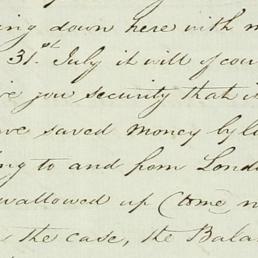 ing down here with m
31st. July it will of cour
ve you security that it
ve saved money by lo
ng to and from Londo
wallowed up (tome n
s the case, the Bala